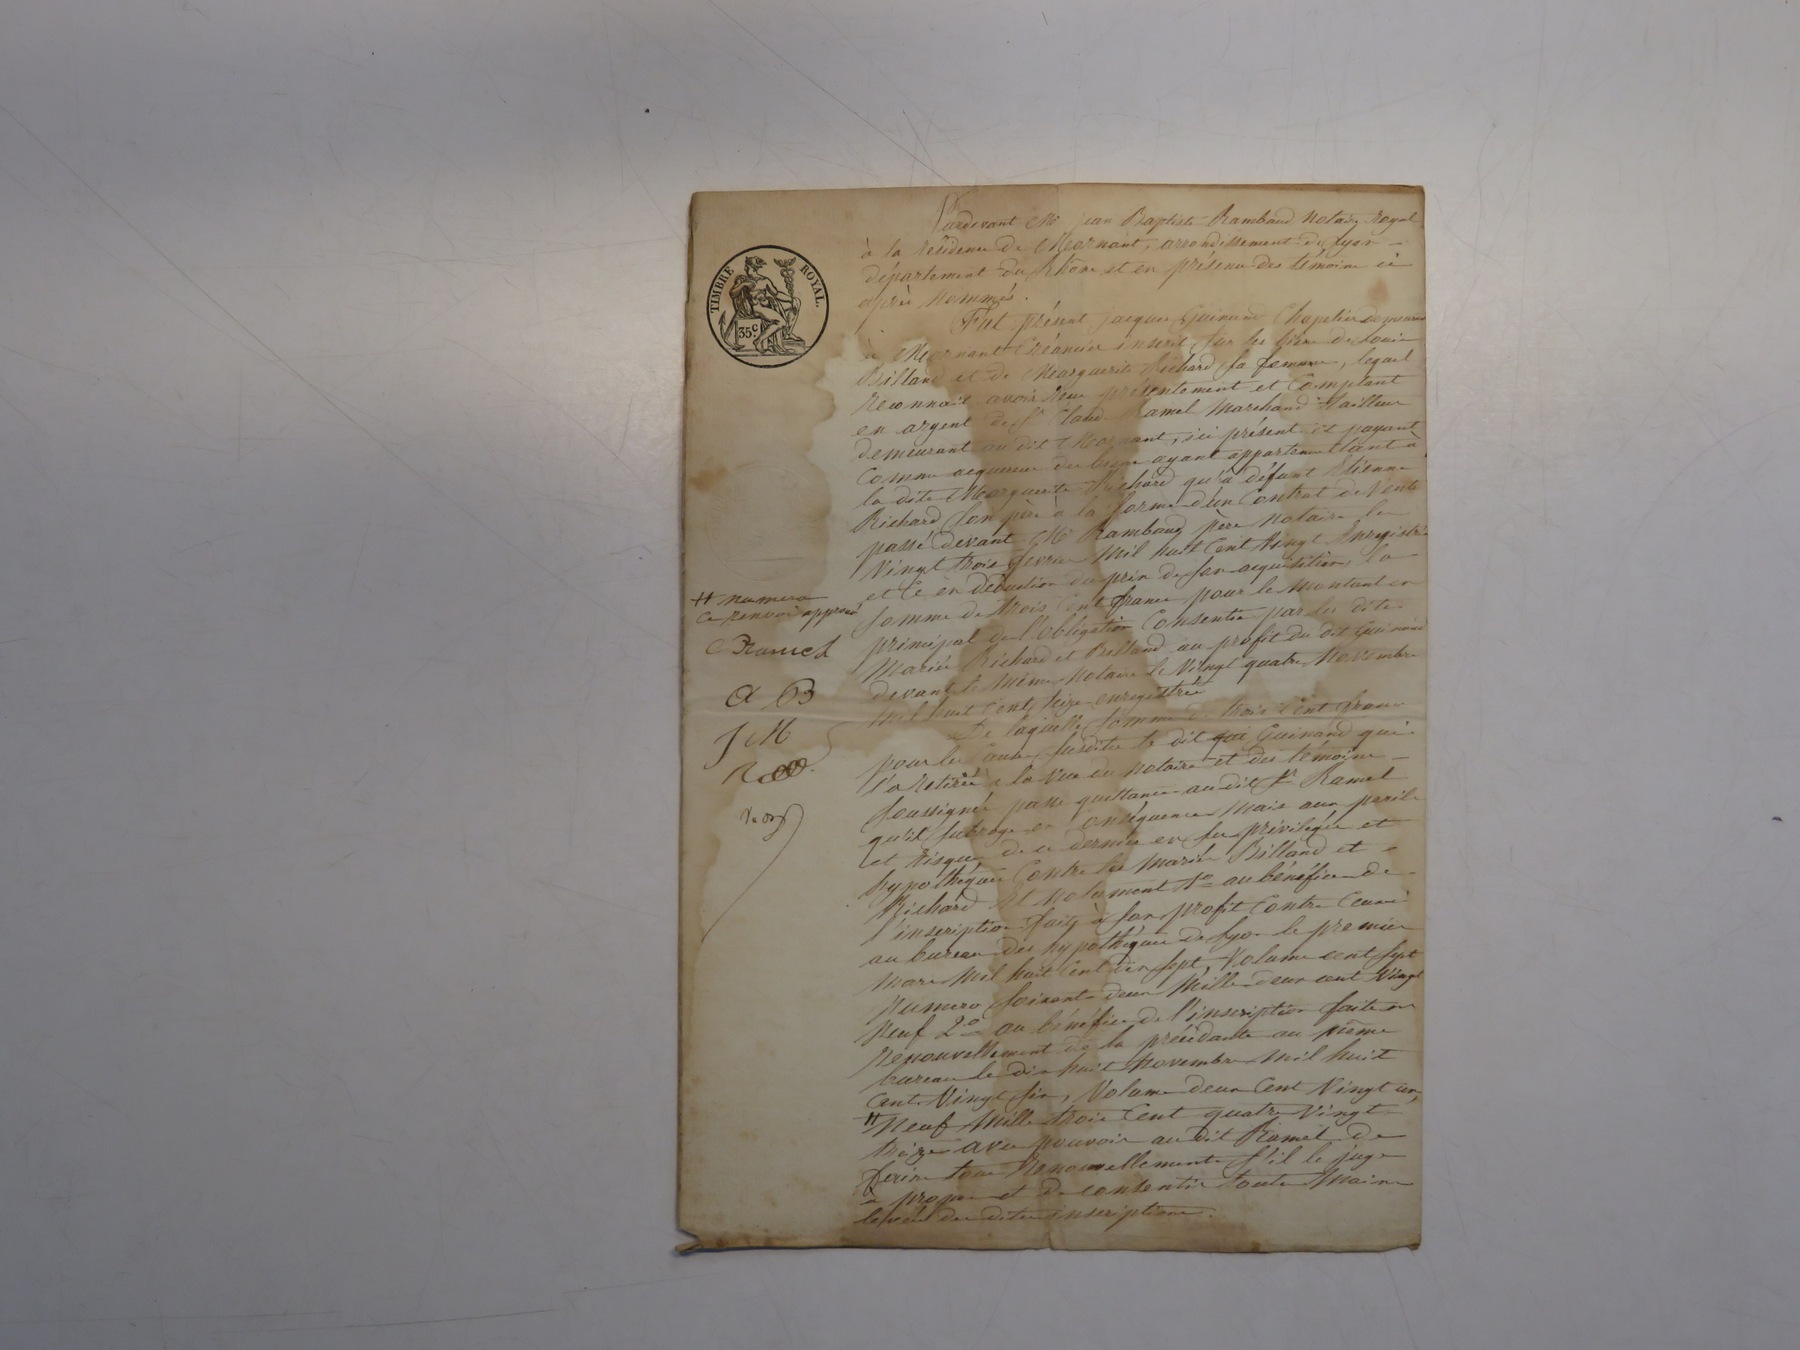 TIMBRE ROYAL.
35c
Pardevant Me jean Baptiste Rambaud Notaire Royal
à la résidence de Mornant, arrondissement de Lyon
département du Rhône et en présence des témoins ci
après Nommés.
Fut présent jacques Guinand Chapelier demeurant
à Mornant Créancier inscrit sur les biens de Louis
Billand et de Marguerite Richard sa femme, lequel
reconnait avoir reçu présentement et Comptant
en argent de Sr Claude Ramel Marchand Tailleur
demeurant au dit Mornant, ici présent et payant
Comme acquereur des biens ayant appartenu tant à
la dite Marguerite Richard qu'à défunt Etienne
Richard son père à la forme d'un Contrat de Vente
passé devant Me Rambaud père Notaire le
Vingt trois fevrier Mil huit Cent Vingt Enregistré
et Ce en déduction du prix de son acquisition, la
Somme de trois Cent francs pour le Montant en
principal de l'obligation Consentie par les dits
Mariés Richard et Billand au profit du dit Guinand
devant le Même Notaire le Vingt quatre Novembre
Mil huit Cent Seize enregistrée
De laquelle Somme de trois Cent francs
pour les Causes susdites le dit Guinand qui
l'a retirée à la Vue du Notaire et des témoins
soussignés passe quittance au dit Sr Ramel
qu'il subroge en Conséquence Mais aux perils
et risques de ce dernier en ses privilèges et
hypothèques Contre les Mariés Billand et
Richard Et Notamment 1o au bénéfice de
l'inscription faite à son profit Contre Ceuxci
au bureau des hypothèques de Lyon le premier
Mars Mil huit Cent dix sept, Volume cent sept
Numero soixante deux Mille deux cent Vingt
Neuf 2o au bénéfice de l'inscription faite en
renouvellement de la précédante au même
bureau le dix huit Novembre Mil huit
Cent Vingt six, Volume deux Cent Vingt un,
# Neuf Mille trois Cent quatre Vingt
treize avec pouvoir au dit Ramel de
faire tous Renouvellements s'il le juge
à propos et de consentir toute Main
levée des dites inscriptions.
# numero
Ce renvoi approuvé
C Ramel
A B
J M